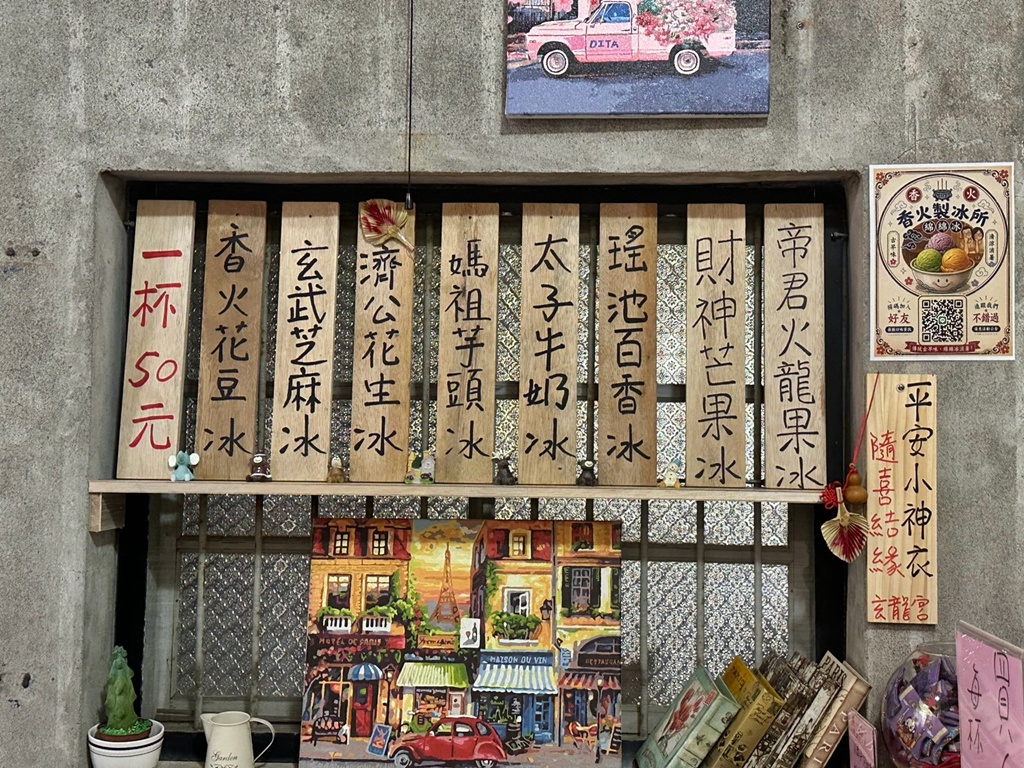 DITA
帝君火龍果冰
財神芒果冰
瑤池百香冰
太子牛奶冰
媽祖芋頭冰
濟公花生冰
玄武芝麻冰
香火花豆冰
一杯50元
香火
香火製冰所
綿綿冰
古早味
好友
不錯過
平安小神衣
隨喜結緣
玄龍宮
HOTEL DE PARIS
MAISON DU VIN
RESTAURAN
Garden